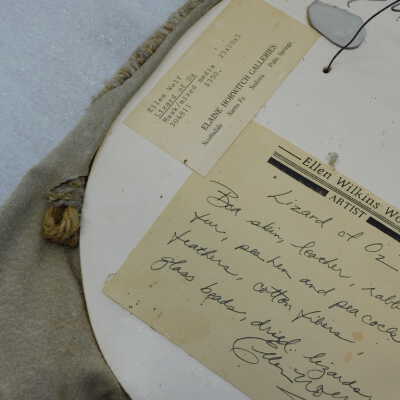 Ellen Wolf
Lizard of Oz
Mask/mixed media 23x19x5
$350.
304811
ELAINE HORWITCH GALLERIES
Scottsdale Santa Fe Sedona Palm Springs
Ellen Wilkins Wo
ARTIST
Lizard of Oz
Boa skin, leather, rabb
fur, pea hen and peacock
feathers, cotton fibers
glass beads, dried lizards
Ellen Wolf